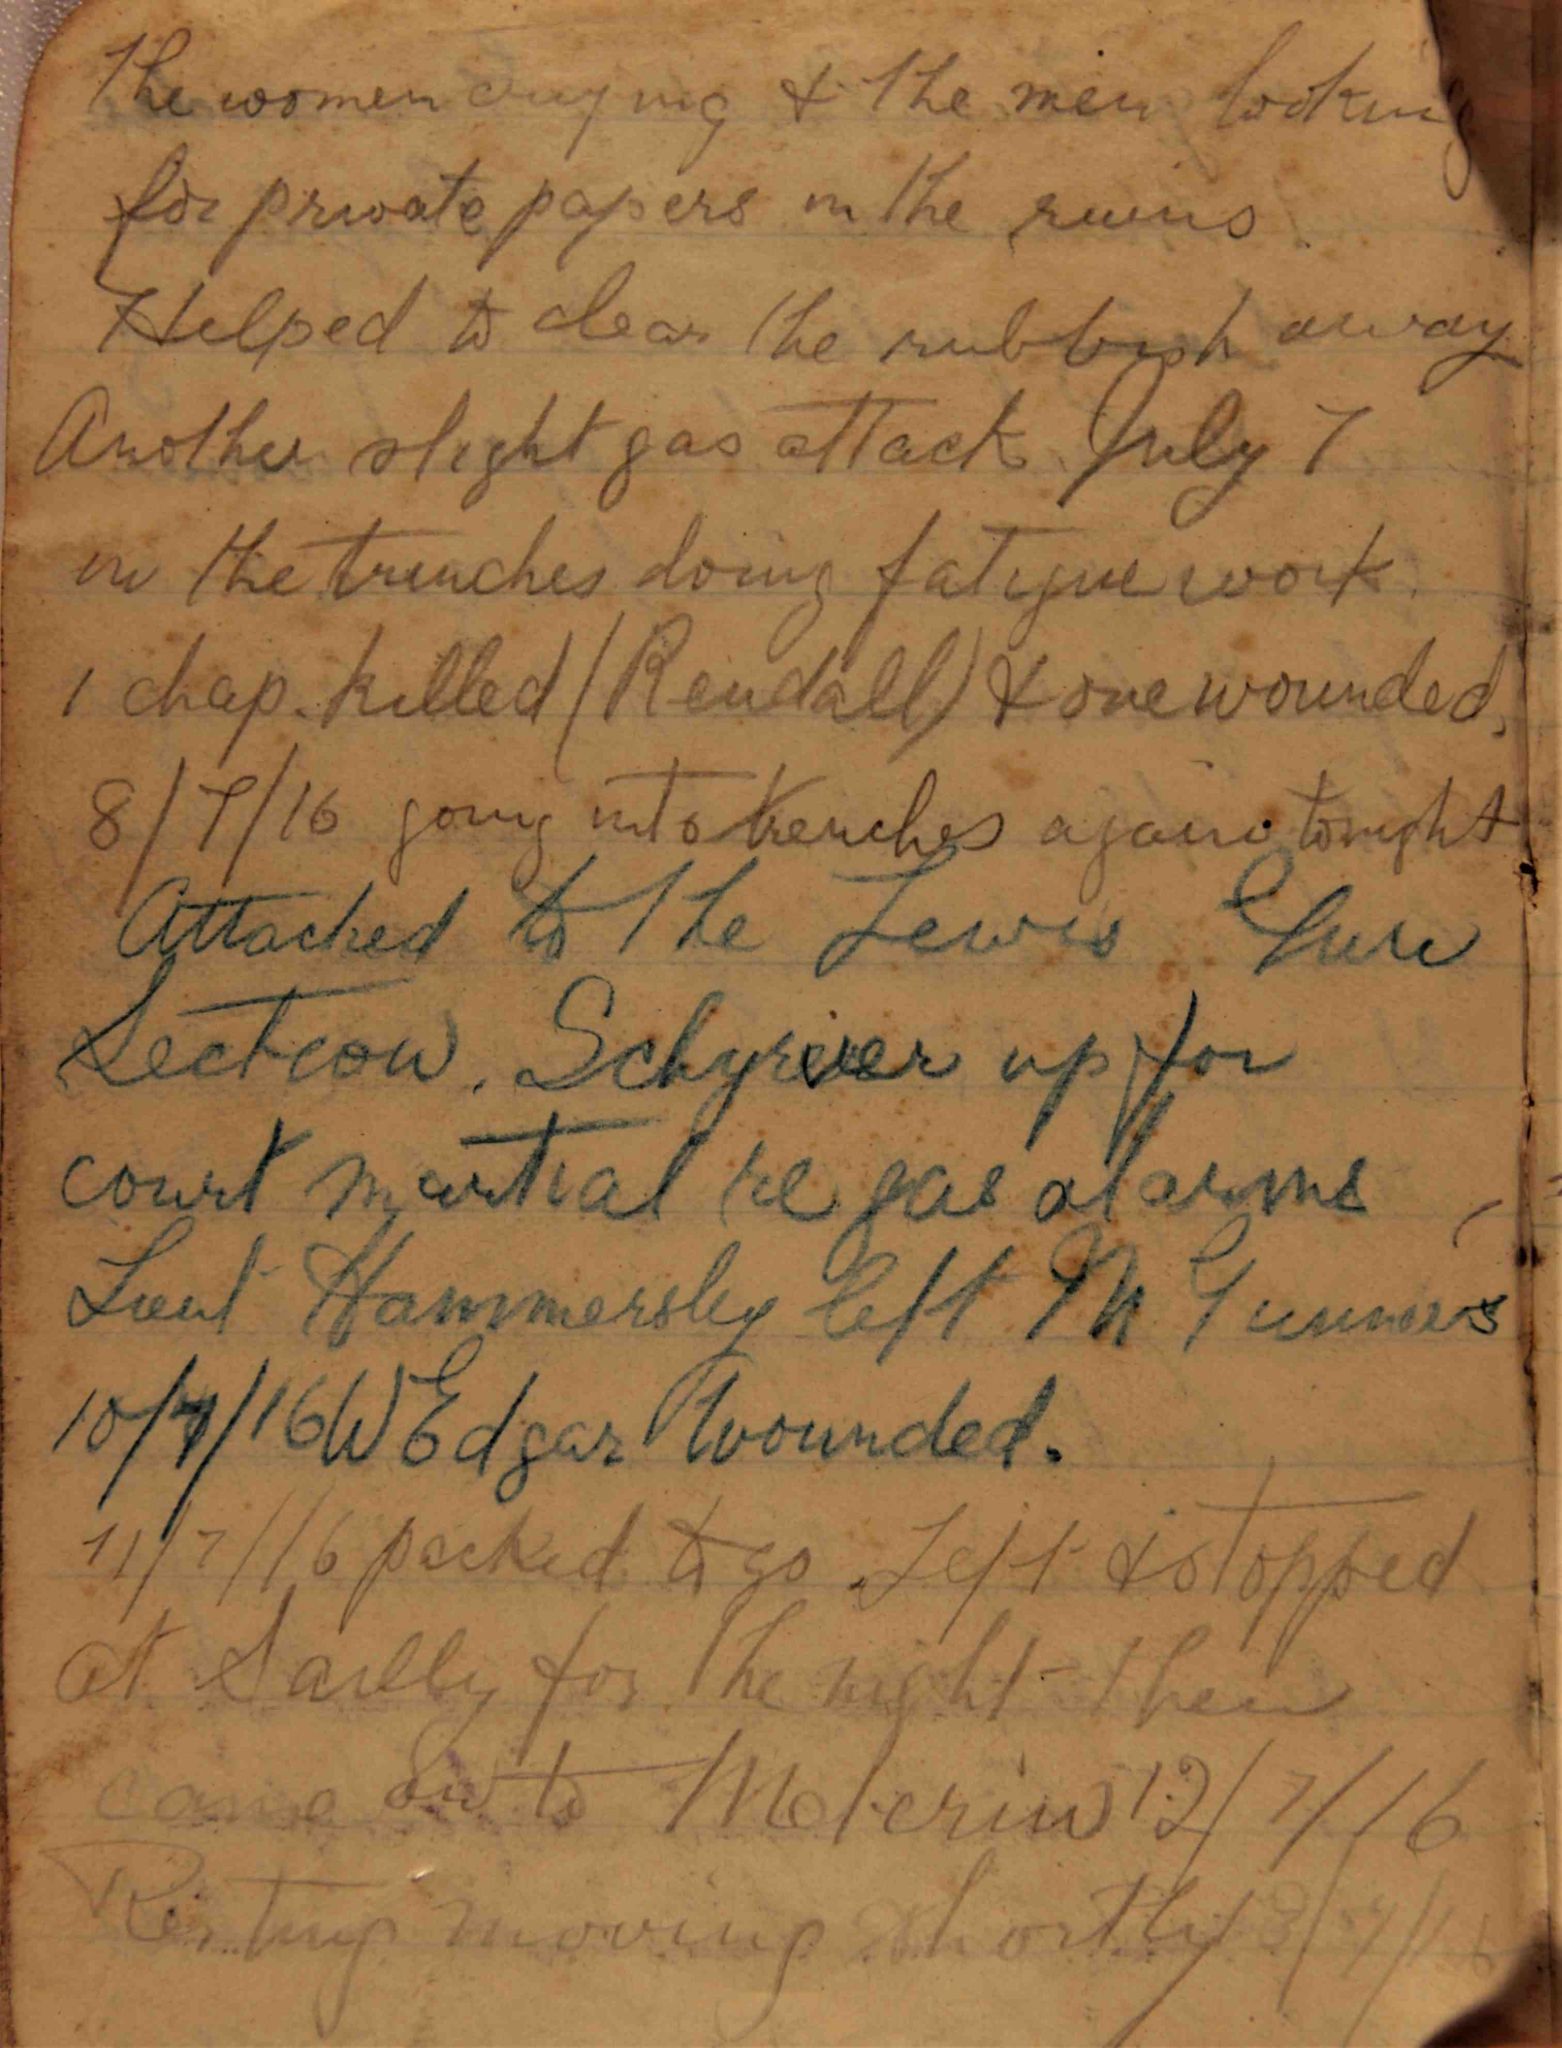 The women crying & the men looking
for private papers in the ruins.
Helped to clear the rubbish away
Another slight gas attack July 7
in the trenches doing fatigue work.
1 chap. killed (Rendall) & one wounded.
8/7/16 going into trenches again tonight
Attached to the Lewis Gun
Section. Schyreier up for
court martial re gas alarms
Lieut Hammersley left M Gunners
10/7/16 W Edgar Wounded.
11/7/16 packed to go. Left & stopped
at Sailly for the night - then
came on to Meterin 12/7/16
Resting moving shortly 13/7/16